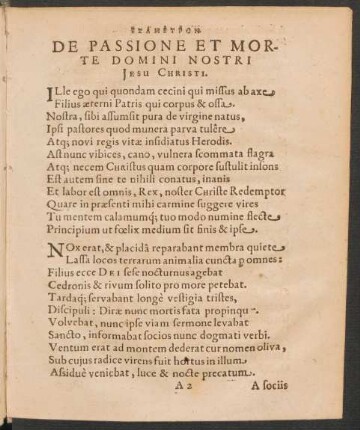 DE PASSIONE ET MOR-
TE DOMINI NOSTRI
JESU CHRISTI.
ILle ego qui quondam cecini qui missus ab axe
Filius æterni Patris qui corpus & ossa
Nostra, sibi assumsit pura de virgine natus,
Ipsi pastores quod munera parva tulêre
Atq; novi regis vitæ insidiatus Herodis.
Ast nunc vibices, cano, vulnera scommata flagra
Atq; necem CHRISTUS quam corpore sustulit insons
Est autem sine te nihili conatus, inanis
Et labor est omnis, REX, noster Christe Redemptor
Quare in præsenti mihi carmine suggere vires
Tu mentem calamumq; tuo modo numine flecte
Principium ut fœlix medium sit finis & ipse.
NOx erat, & placidâ reparabant membra quiete
Lassa locos terrarum animalia cuncta p omnes:
Filius ecce DEI sese nocturnus agebat
Cedronis & rivum solito pro more petebat.
Tardaq; servabant longè vestigia tristes,
Discipuli: Diræ nunc mortis fata propinqu-
Volvebat, nunc ipse viam sermone levabat
Sancto, informabat socios nunc dogmati verbi.
Ventum erat ad montem dederat cui nomen oliva,
Sub cujus radice virens fuit hortus in illum
Assiduè veniebat, luce & nocte precatum
A 2 A sociis